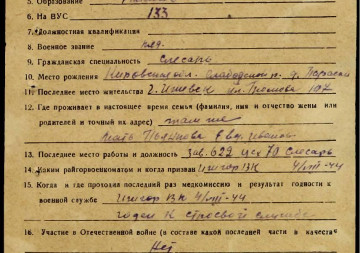 5. Образование
6. На ВУС 133
7. Должностная квалификация
8. Военное звание ряд.
9. Гражданская специальность Слесарь
10. Место рождения Кировской обл. Слободской р. д.
11. Последнее место жительства г. Ижевск ул. 107
12. Где проживает в настоящее время семья (фамилия, имя и отчество жены или
родителей и точный их адрес) там же
мать
13. Последнее место работы и должность зав. 622 цех 79 Слесарь
14. Каким райгорвоенкоматом и когда призван Ижгор ВК 4/VIII-44
15. Когда и где проходил последний раз медкомиссию и результат годности к
военной службе Ижгор ВК 4/VIII-44
годен к строевой службе
16. Участие в Отечественной войне (в составе какой последней части в качестве
Нет